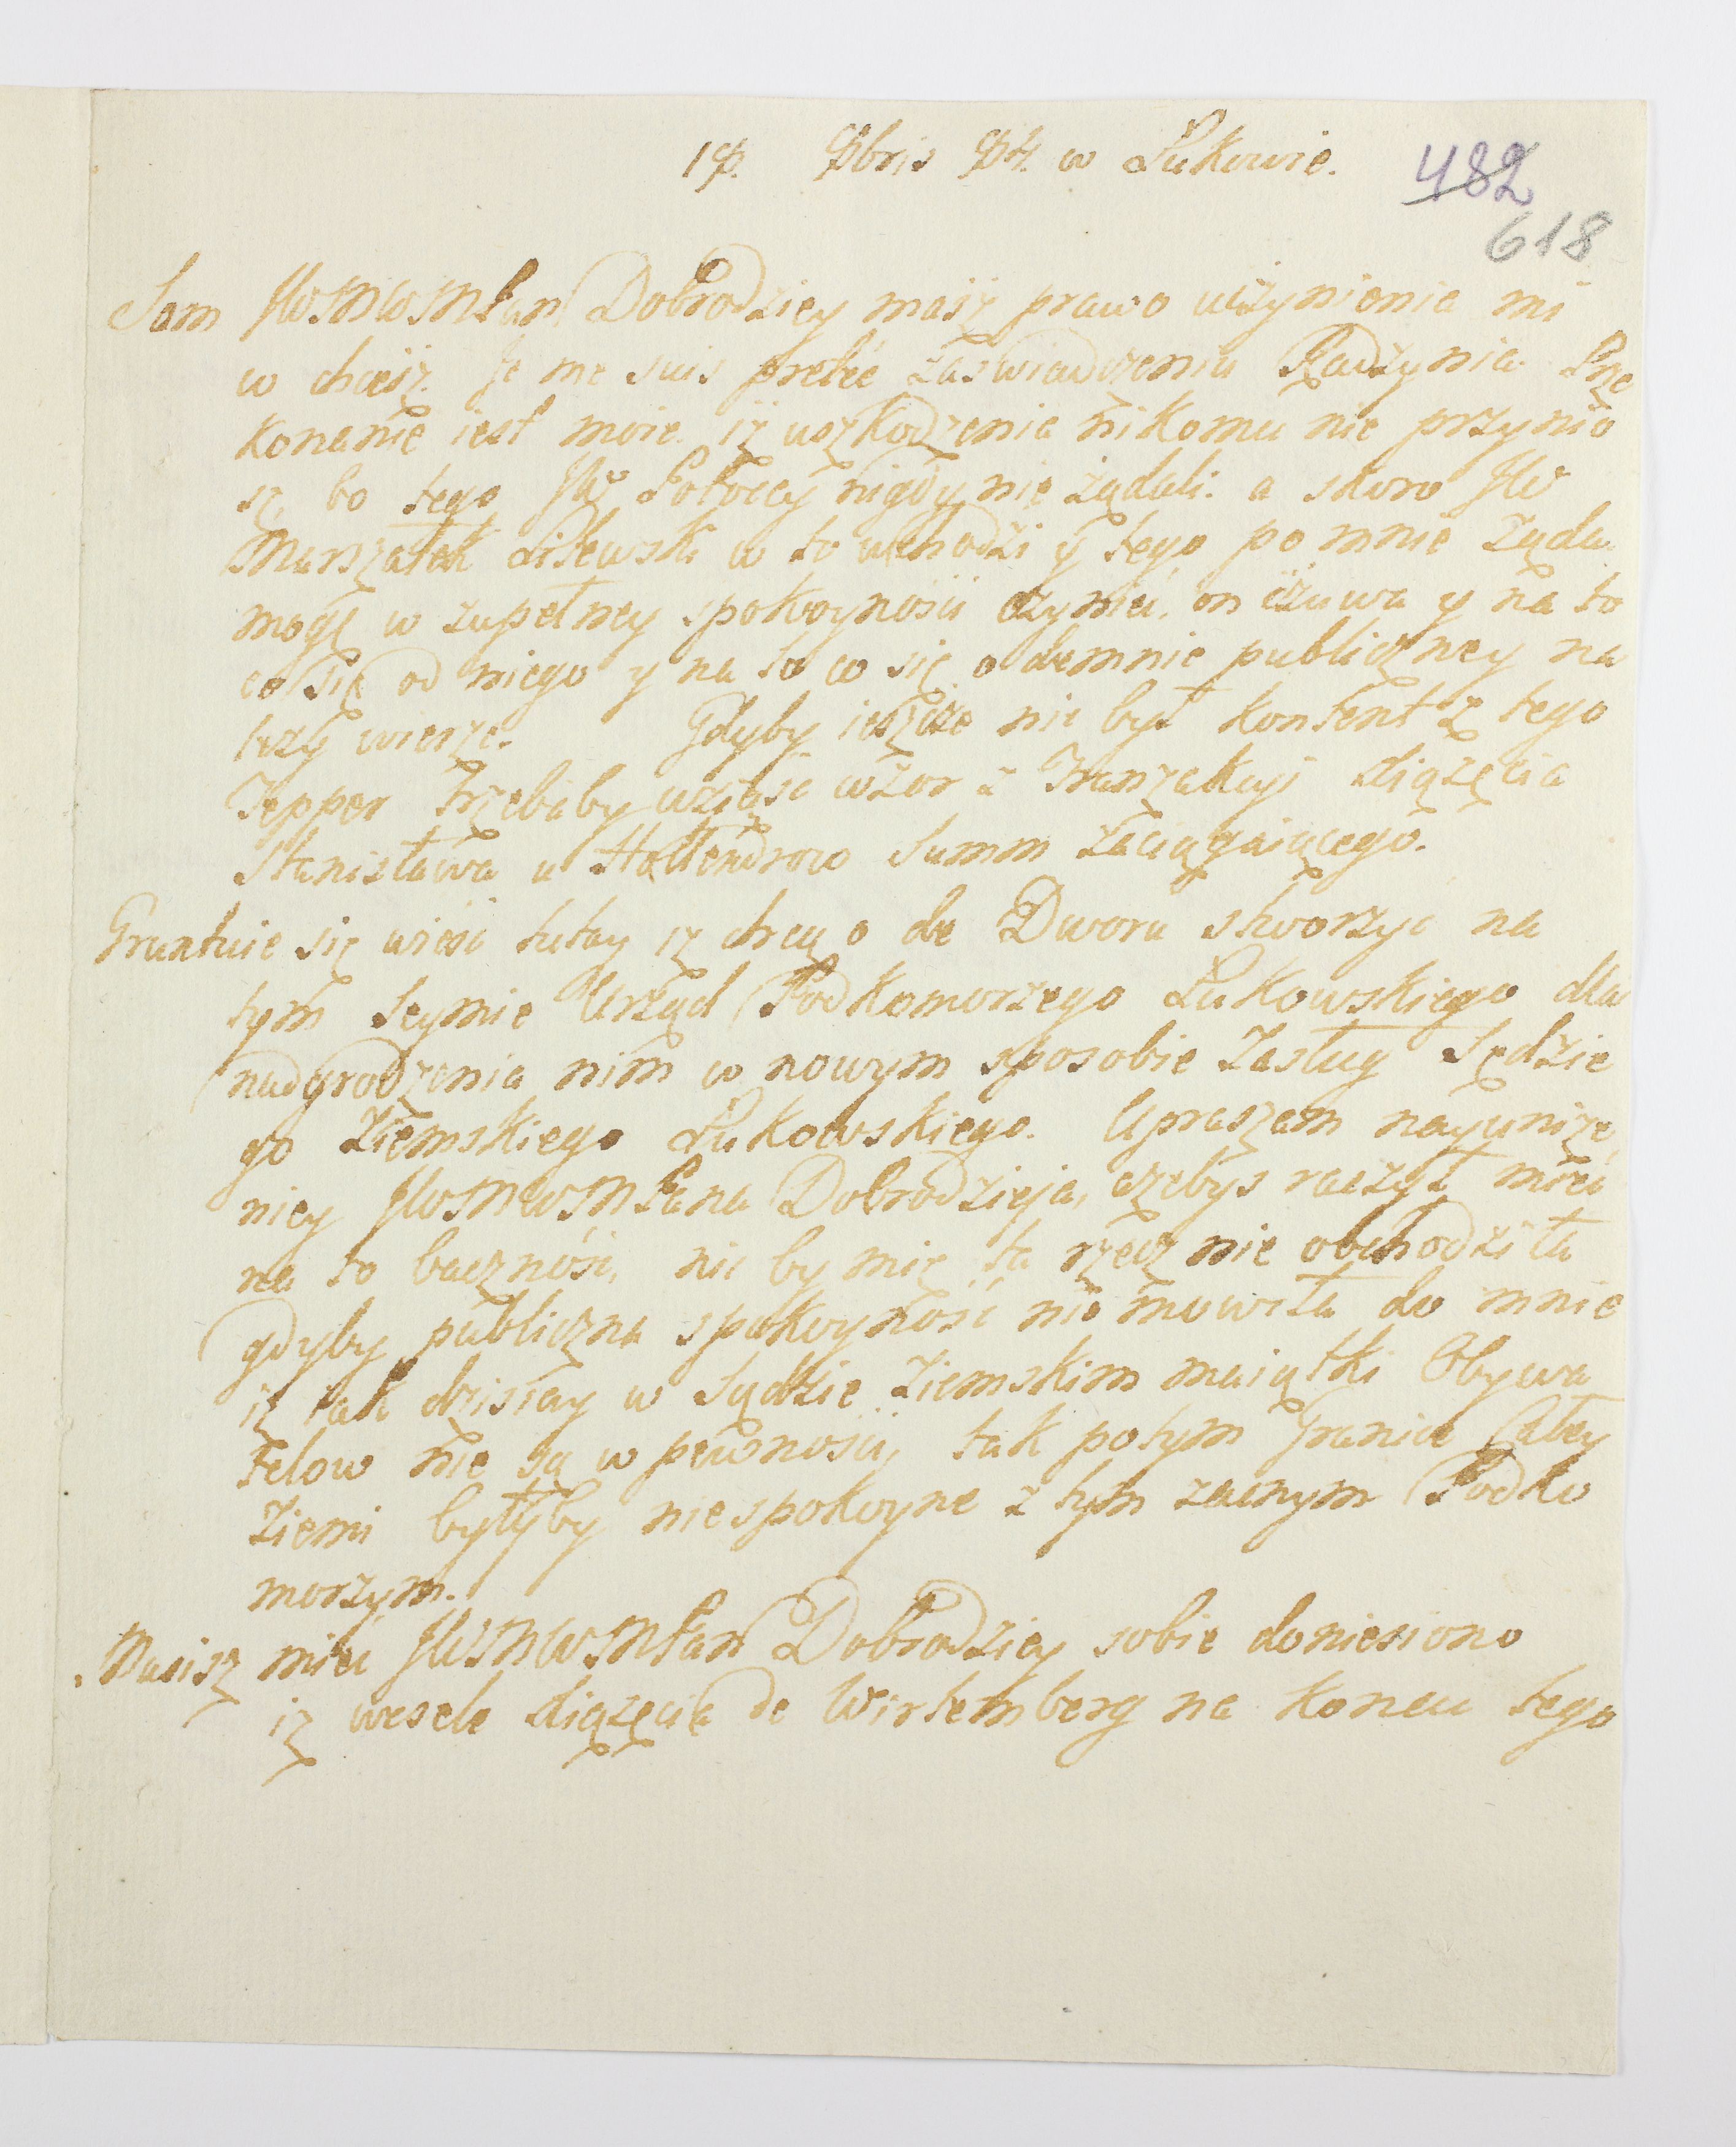 18. 8bris 84. w Łukowie.
482
618
Sam JWWMWMPan Dobrodziey masz prawo uczynienia mi
w chcesz. Je me suis preteé zaświadczeniu Radzynia. Prze
konanie iest moie. iż uszkodzenia nikomu nie przynio
są, bo tego JW Potoccy nigdy nie żądali. a skoro JW
Marszałek Litewski w to wchodzi y tego po mnie żąda.
mogę w zupełney spokoyności czynić. on czuwa y na to
co się od niego y na to co się odemnie publiczney na
leży wierze. Gdyby ieszcze nie był kontent z tego
Tepper trzebaby wziąść wzor z Tranzakcyi Xiążęcia
Stanisława u Hollendrow Summ zaciągaiącego.
Gruntuie się wieść tutay iż chcą o de Dworu stworzyć na
tym Seymie Urząd Podkomorzego Łukowskiego dla
nadgrodzenia nim w nowym sposobie zasług Sędzie
go Ziemskiego Łukowskiego. Upraszam nayuniże,
niey JWWMWMPana Dobrodzieja, ażebyś raczył mieć
na to baczność, nic by mię ta rzecz nie obchodziła
gdyby publiczna spokoyność nie mowiła do mnie
iż iak dzisiay w Sądzie Ziemskim maiątki Obywa
telow nie są w pewności, tak potym Granice całey
Ziemi byłyby niespokoyne z tym zacnym Podko
morzym.
Musisz mieć JWWMWMPan Dobrodziey sobie doniesiono
iż wesele Xiążęcia de Wirtemberg na koncu tego